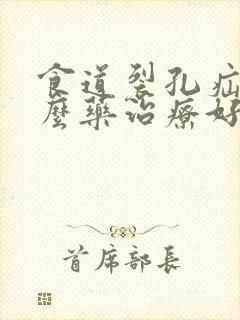 食道裂孔疝
麼藥治療好
首席部長